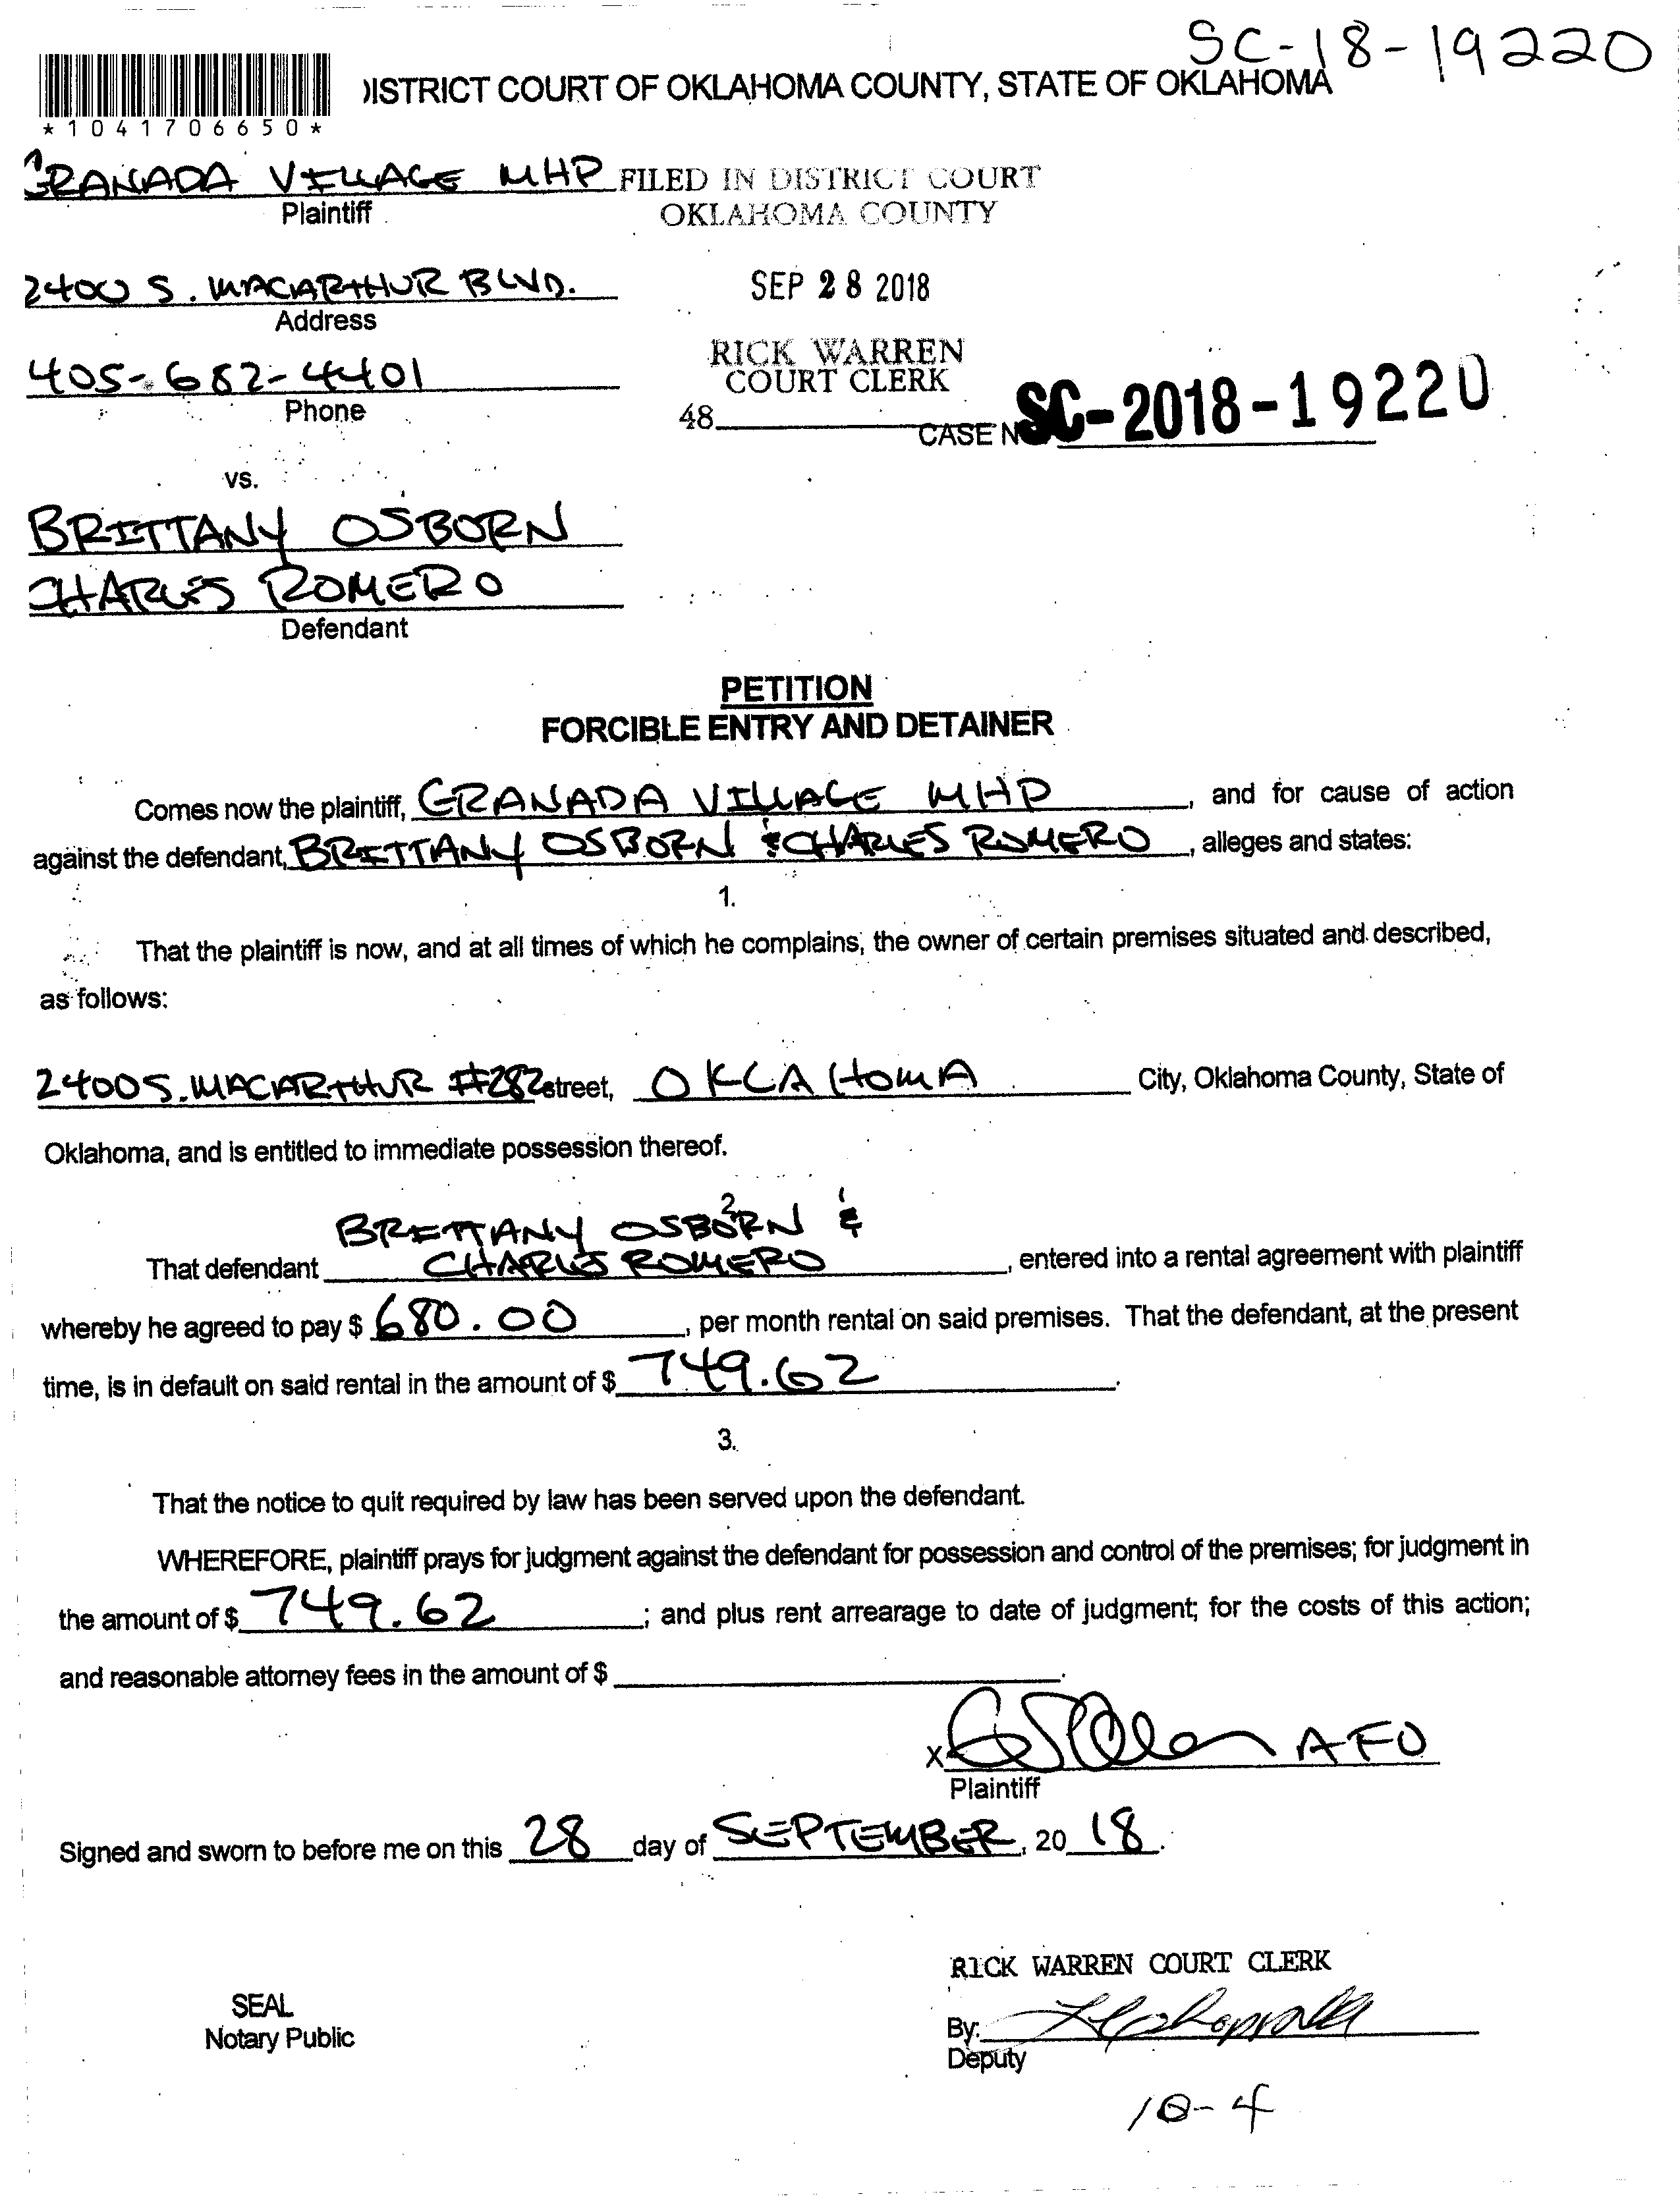 SC-18-19220
DISTRICT COURT OF OKLAHOMA COUNTY, STATE OF OKLAHOMA
*1041706650*
GRANADA VILLAGE MHP
Plaintiff
FILED IN DISTRICT COURT
OKLAHOMA COUNTY
2400 S. MACARTHUR BLVD.
Address
SEP 28 2018
405-682-4401
Phone
RICK WARREN
COURT CLERK
48
CASE NO SC-2018-19220
vs.
BRITTANY OSBORN
CHARLES ROMERO
Defendant
PETITION
FORCIBLE ENTRY AND DETAINER
Comes now the plaintiff, GRANADA VILLAGE MHP, and for cause of action
against the defendant, BRITTANY OSBORN & CHARLES ROMERO, alleges and states:
1.
That the plaintiff is now, and at all times of which he complains, the owner of certain premises situated and described,
as follows:
2400 S. MACARTHUR #282 street, OKLAHOMA City, Oklahoma County, State of
Oklahoma, and is entitled to immediate possession thereof.
2.
BRITTANY OSBORN &
That defendant CHARLES ROMERO, entered into a rental agreement with plaintiff
whereby he agreed to pay $ 680.00, per month rental on said premises. That the defendant, at the present
time, is in default on said rental in the amount of $ 749.62.
3.
That the notice to quit required by law has been served upon the defendant.
WHEREFORE, plaintiff prays for judgment against the defendant for possession and control of the premises; for judgment in
the amount of $ 749.62; and plus rent arrearage to date of judgment; for the costs of this action;
and reasonable attorney fees in the amount of $
X AFO
Plaintiff
Signed and sworn to before me on this 28 day of SEPTEMBER, 20 18.
RICK WARREN COURT CLERK
SEAL
Notary Public
By:
Deputy
10-4